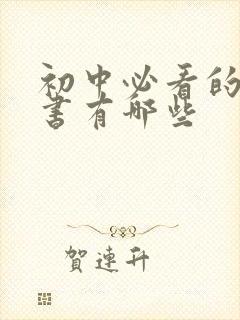 初中必看的
书有哪些
贺连升